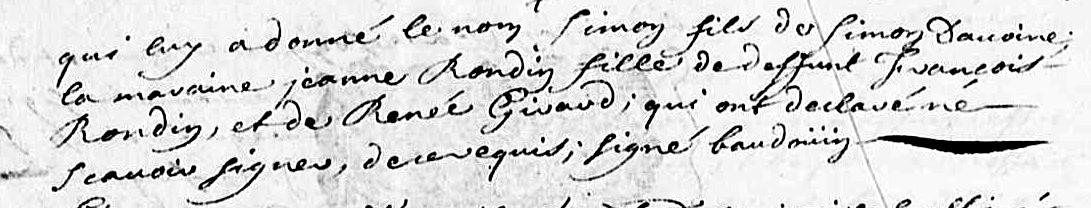 qui luy a donné le nom Simon fils de Simon Davoine;
la maraine jeanne Rondin fille de deffunt François
Rondin, et de Renée Girard; qui ont declaré né
scavoir signer, de ce requis; signé baudriiin